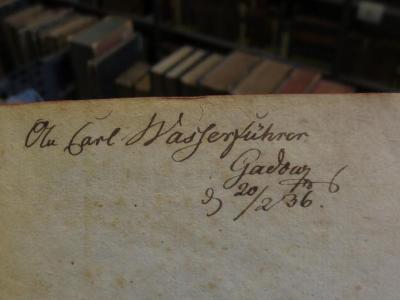 Carl Wasserführer
Gadow
d 20/2 36.